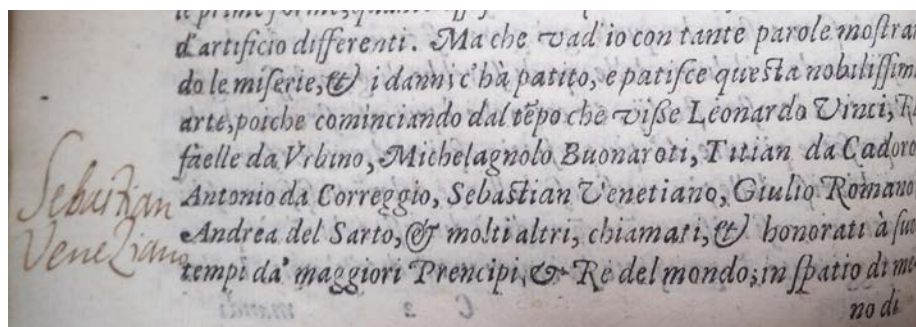 le prime forme, quanto
d'artificio differenti. Ma che vad'io con tante parole mostran
do le miserie, & i danni c'hà patito, e patisce questa nobilissima
arte, poiche cominciando dal tẽpo che visse Leonardo Vinci, Ra
faelle da Vrbino, Michelagnolo Buonaroti, Titian da Cadoro
Antonio da Correggio, Sebastian Venetiano, Giulio Romano
Andrea del Sarto, & molti altri, chiamati, & honorati à suoi
tempi da' maggiori Prencipi, & Re del mondo; in spatio di me
no di
Sebastian
Veneziano